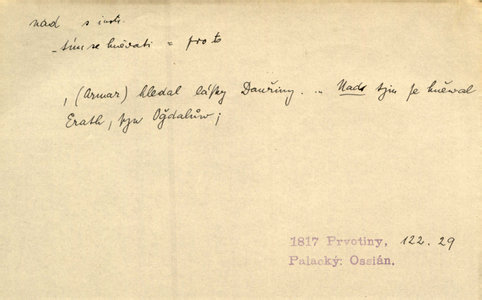 nad s instr.
– tím se hněvati = proto
, (Armar) hledal lásky Dauřiny. .. Nad tjm se hněwal
Erath, syn Oğdalůw;
1817 Prvotiny, 122.29
Palacký: Ossián.